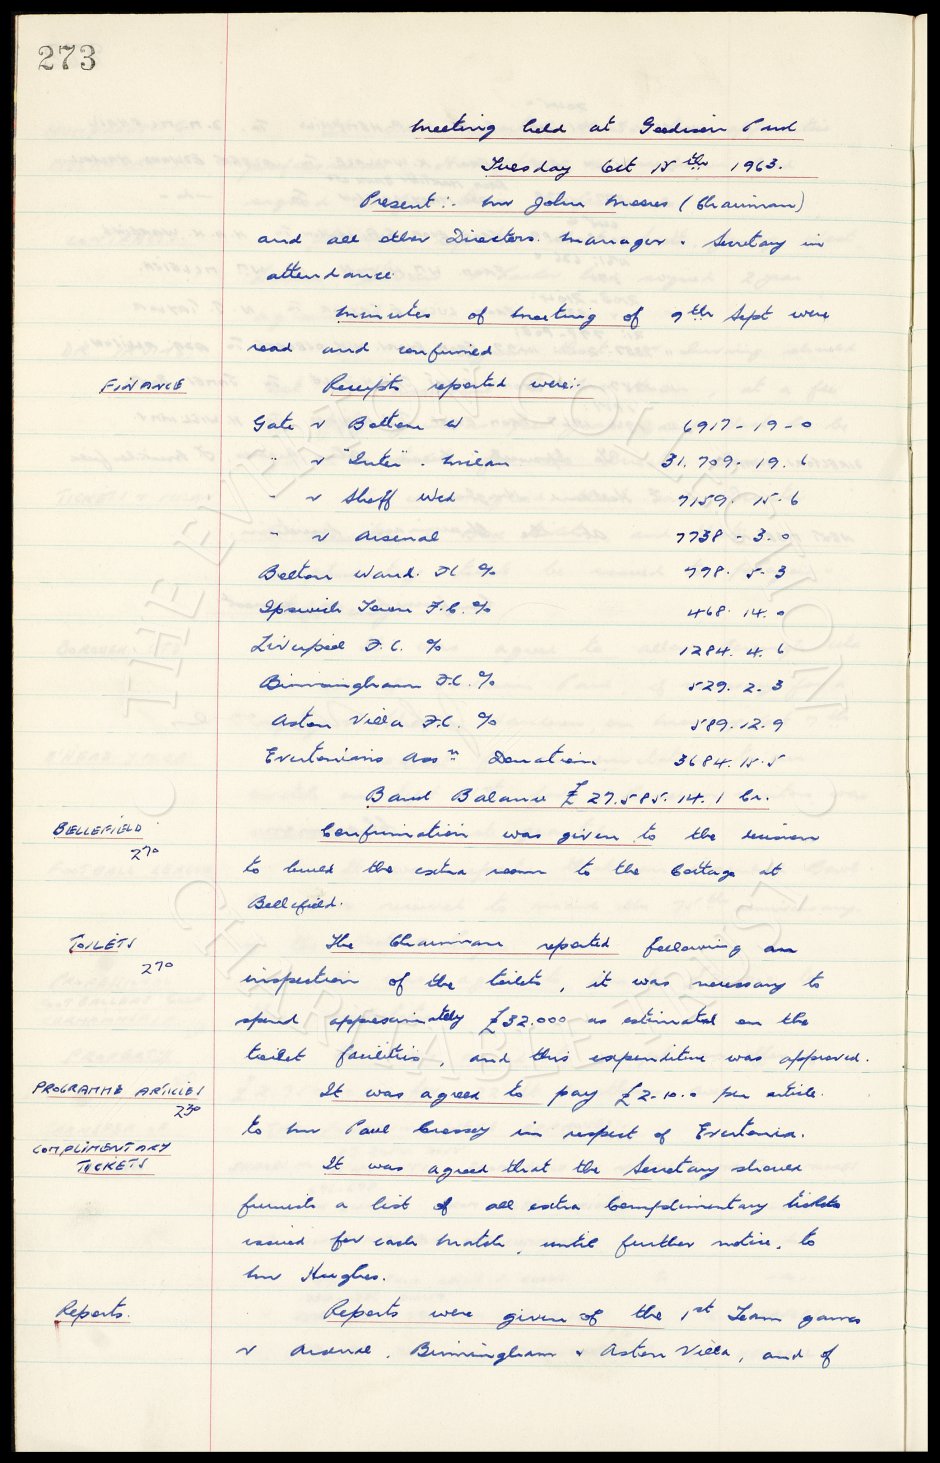 273
Meeting held at Goodison Park
Tuesday Oct 15th 1963.
Present:- Mr John Moores (Chairman)
and all other Directors. Manager & Secretary in
attendance.
Minutes of Meeting of 9th Sept were
read and confirmed
FINANCE Receipts reported were:-
Gate v Bolton W 6917-19-0
" v "Inter". Milan 31.709.19.6
" v Sheff Wed 7159.15.6
" v Arsenal 7738-3.0
Bolton Wand. F.C % 778.5.3
Ipswich Town F.C. % 468.14.0
Liverpool F.C. % 1284.4.6
Birmingham F.C. % 529.2.3
Aston Villa F.C. % 589.12.9
Evertonians Assn Donation 3684.15.5
Bank Balance £27.585.14.1 Cr.
BELLEFIELD Confirmation was given to the decision
270
to build the extra room to the Cottage at
Bellefield.
TOILETS The Chairman reported following an
270
inspection of the toilets, it was necessary to
spend approximately £32.000 as estimated on the
toilet facilities, and this expenditure was approved.
PROGRAMME ARTICLES It was agreed to pay £2-10.0 per article.
230
to Mr Paul in respect of Evertonia.
COMPLIMENTARY
TICKETS It was agreed that the Secretary should
furnish a list of all extra Complimentary tickets
issued for each Match, until further notice, to
Mr Hughes.
Reports. Reports were given of the 1st Team games
v Arsenal, Birmingham & Aston Villa, and of
THE EVERTON COLLECTION
CHARITABLE TRUST